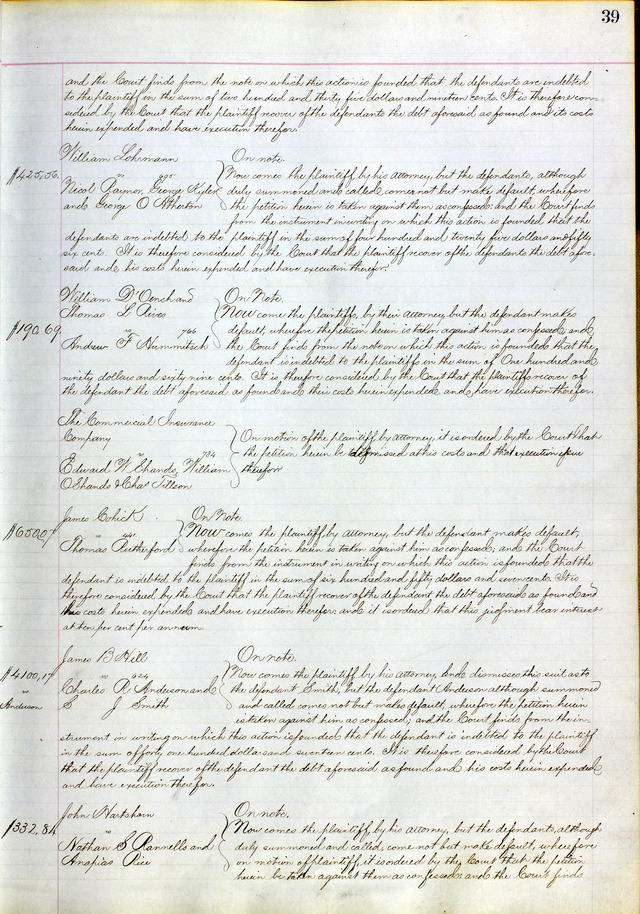 39
and the Court finds from the note on which this action is founded that the defendants are indebted
to the plaintiff in the sum of two hundred and thirty five dollars and nineteen cents. It is therefore con-
sidered by the Court that the plaintiff recover of the defendants the debt aforesaid as found and its costs
herein expended and have execution therefor.
William Lohrmann On note.
$425,56. vs Now comes the plaintiff by his attorney, but the defendants, although
Nicol Raynor, George Kyler duly summoned and called comes not but make default, wherefore
and George O Atherton the petition herein is taken against them as confessed: and the Court finds
from the instrument in writing on which this action is founded that the
defendants are indebted to the plaintiff in the sum of four hundred and twenty five dollars and fifty
six cents. It is therefore considered by the Court that the plaintiff recover of the defendants the debt afore-
said and his costs herein expended and have execution therefor.
William D'Oench and On Note.
Thomas L Rives Now come the plaintiffs, by their attorney but the defendant makes
$190,69 vs 766 default, wherefore the petition herein is taken against him as confessed, and
Andrew F Hummitsch the Court finds from the note on which this action is founded that the
defendant is indebted to the plaintiffs in the sum of One hundred and
ninety dollars and sixty nine cents. It is, therefore considered by the Court that the plaintiffs recover of
the defendant the debt aforesaid as found and their costs herein expended, and have execution therefor.
The Commercial Insurance
Company On motion of the plaintiff by attorney, it is ordered by the Court that
vs 734 the petition herein be dismissed at his costs and that execution issue
Edward W Shands, William therefor
O Shands & Chas Tillson
James Cohick On Note.
$650,07 vs Now comes the plaintiff by attorney, but the defendant makes default,
Thomas Rutherford wherefore the petition herein is taken against him as confessed; and the Court
finds from the instrument in writing on which this action is founded that the
defendant is indebted to the plaintiff in the sum of six hundred and fifty dollars and seven cents. It is
therefore considered by the Court that the plaintiff recover of the defendant the debt aforesaid as found and
his costs herein expended and have execution therefor; and it is ordered that this judgment bear interest
at ten per cent per annum
James B Hill On note.
$4100,17 vs 624 Now comes the plaintiff by his attorney, and dismisses this suit as to
vs Charles R Anderson and the defendant Smith, but the defendant Anderson although summoned
Anderson S J Smith and called comes not but makes default, wherefore the petition herein
is taken against him as confessed; and the Court finds from the in-
strument in writing on which this action is founded that the defendant is indebted to the plaintiff
in the sum of forty one hundred dollars and seventeen cents. It is therefore considered by the Court
that the plaintiff recover of the defendant the debt aforesaid as found and his costs herein expended
and have execution therefor.
John Hartshorn On note.
$332,84 vs Now comes the plaintiff by his attorney, but the defendants, although
Nathan S Rannells and duly summoned and called, come not but make default, wherefore
Ananias Rice on motion of plaintiff, it is ordered by the Court that the petition
herein be taken against them as confessed; and the Court finds